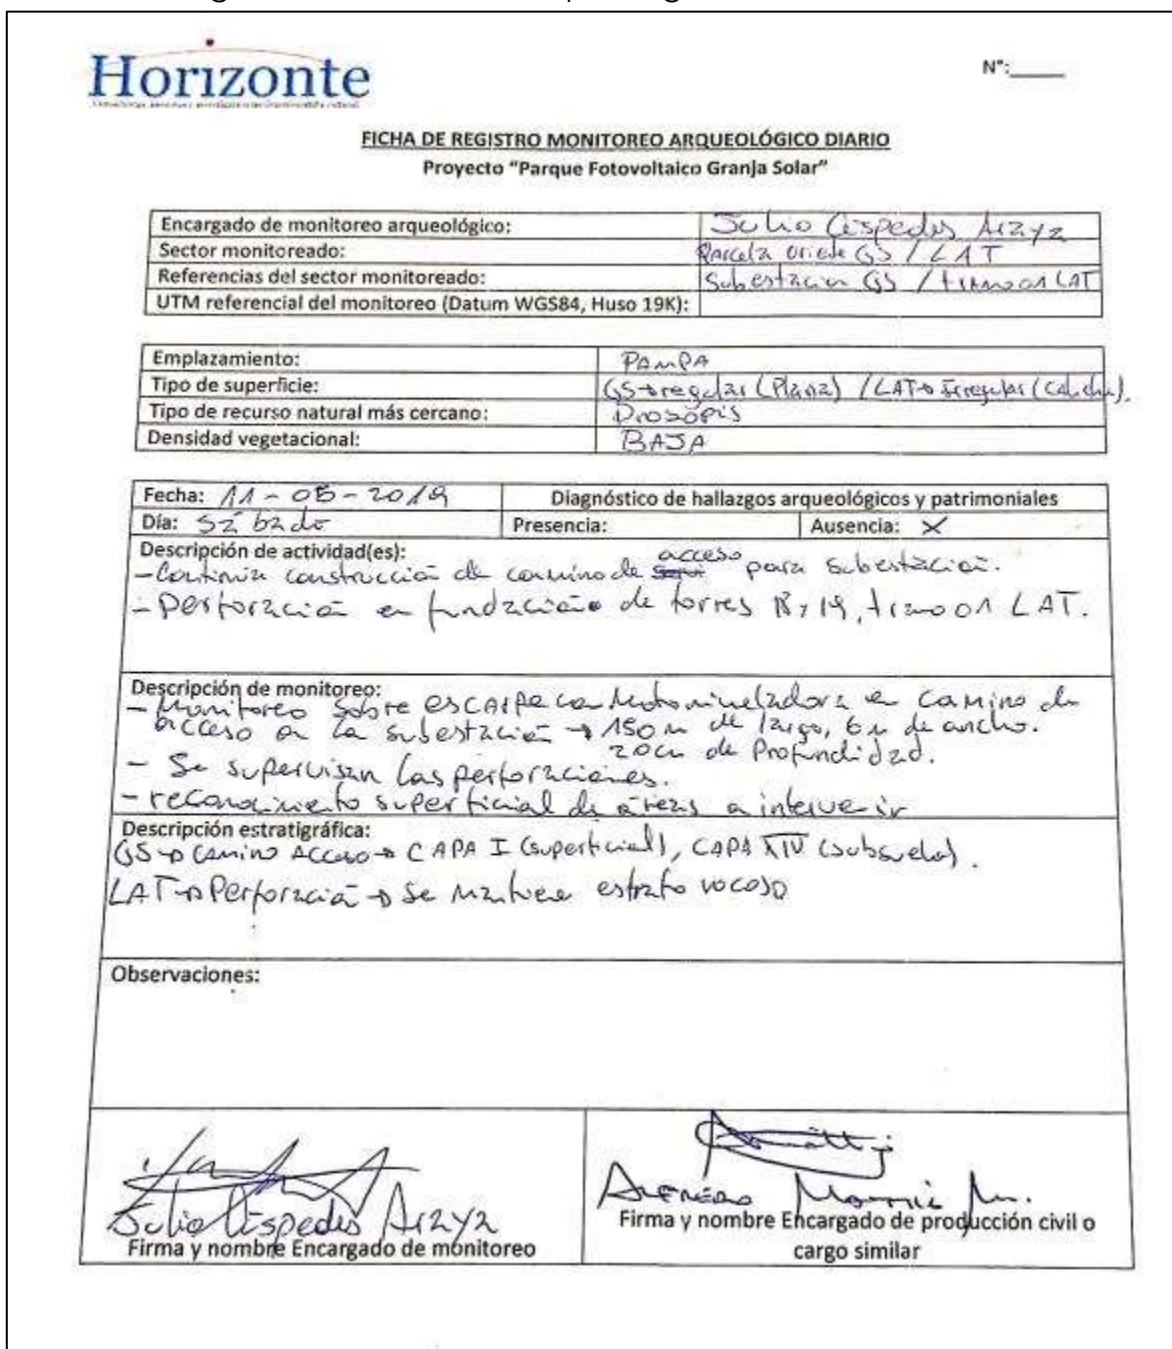 Horizonte
N°:_____
FICHA DE REGISTRO MONITOREO ARQUEOLÓGICO DIARIO
Proyecto "Parque Fotovoltaico Granja Solar"
Encargado de monitoreo arqueológico: Julio Céspedes Araya
Sector monitoreado: Parcela oriente GS / LAT
Referencias del sector monitoreado: Subestación GS / tramo 01 LAT
UTM referencial del monitoreo (Datum WGS84, Huso 19K):
Emplazamiento: PAMPA
Tipo de superficie: GS→regular (Plana) / LAT→ Irregular
Tipo de recurso natural más cercano: Prosopis
Densidad vegetacional: BAJA
Fecha: 11-05-2019 Diagnóstico de hallazgos arqueológicos y patrimoniales
Día: Sábado Presencia: Ausencia: X
Descripción de actividad(es):
- Continúa construcción de camino de acceso para subestación.
- Perforación en fundación de torres 18 y 19, tramo 01 LAT.
Descripción de monitoreo:
- Monitoreo sobre escarpe con Motoniveladora en camino de
acceso a la subestación → 150 m de largo, 6 m de ancho.
20cm de Profundidad.
- Se supervisan las perforaciones.
- reconocimiento superficial de áreas a intervenir
Descripción estratigráfica:
GS→ Camino Acceso → CAPA I (superficial), CAPA (subsuelo).
LAT→Perforación→ se mantiene estrato rocoso
Observaciones:
Julio Céspedes Araya
Firma y nombre Encargado de monitoreo
Alfredo
Firma y nombre Encargado de producción civil o
cargo similar